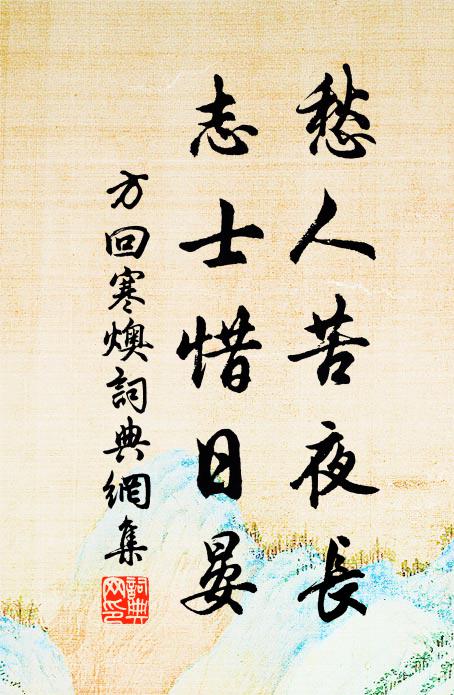 愁人苦夜長
志士惜日晏
方回寒燠詞典網集
詞典網印